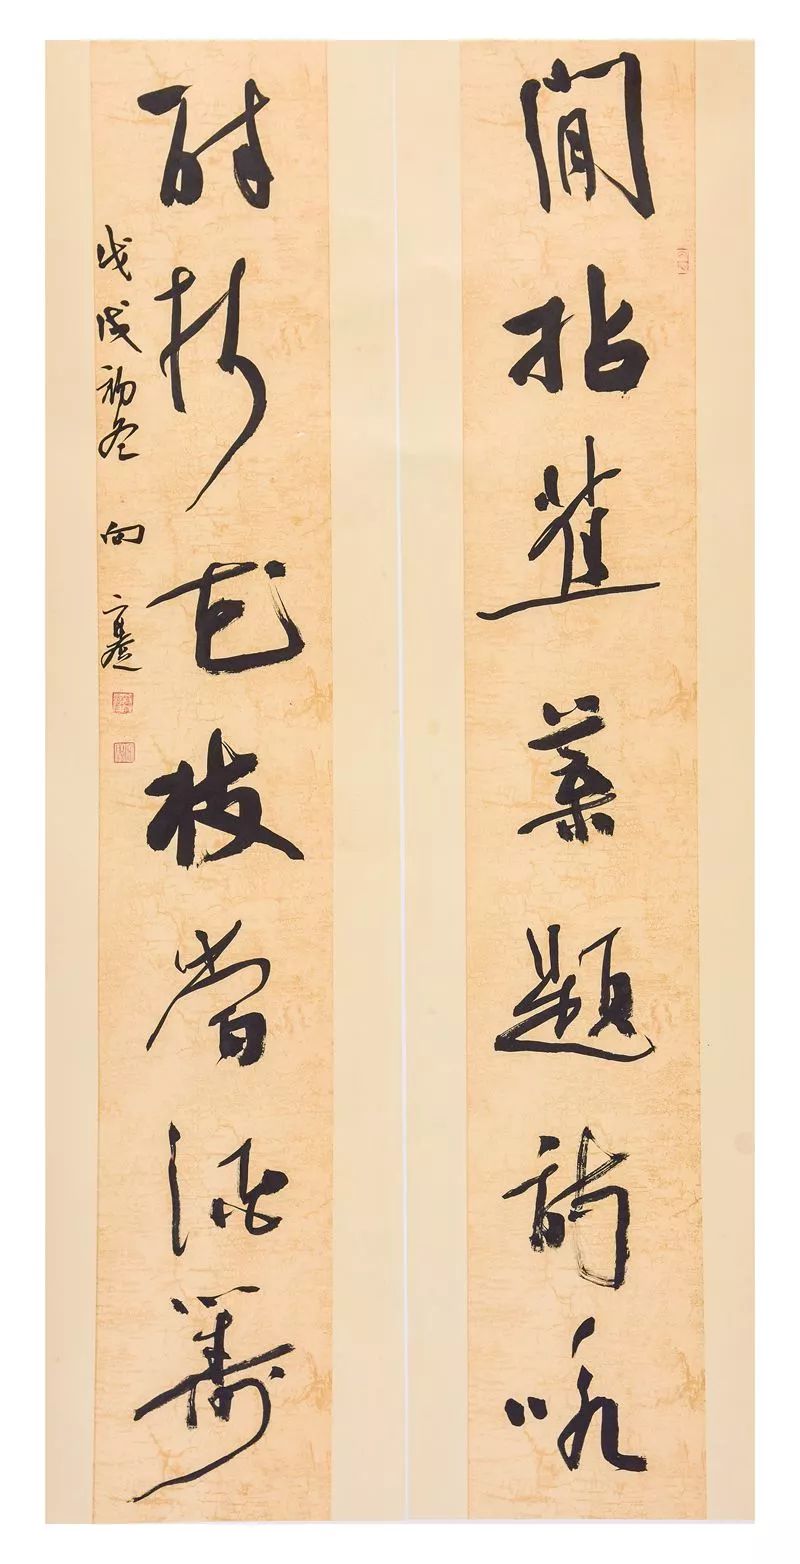 閒拈蕉葉題詩咏
醉折花枝當酒籌
戊戌初冬 向